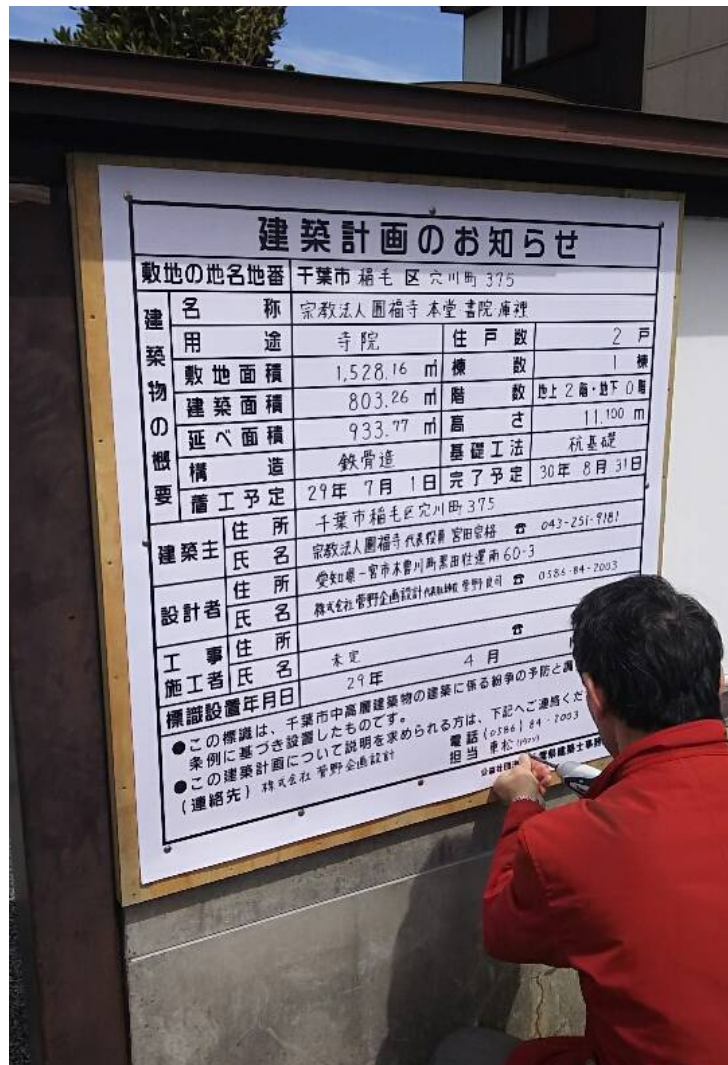 建築計画のお知らせ
敷地の地名地番 千葉市 稲毛 区 穴川町 375
建築物の概要
名称 宗教法人 圓福寺 本堂 書院 庫裡
用途 寺院 住戸数 2 戸
敷地面積 1,528.16 ㎡ 棟数 1 棟
建築面積 803.26 ㎡ 階数 地上 2 階・地下 0 階
延べ面積 933.77 ㎡ 高さ 11.100 m
構造 鉄骨造 基礎工法 杭基礎
着工予定 29年 7月 1日 完了予定 30年 8月 31日
建築主 住所 千葉市稲毛区穴川町375
氏名 宗教法人圓福寺 代表役員 宮田宗格 ☎ 043-251-9181
設計者 住所 愛知県一宮市木曽川町黒田往還南60-3
氏名 株式会社 菅野企画設計 代表取締役 菅野良司 ☎ 0586-84-2003
工事施工者 住所
氏名 未定 ☎
標識設置年月日 29年 4月
●この標識は、千葉市中高層建築物の建築に係る紛争の予防と調
条例に基づき設置したものです。
●この建築計画について説明を求められる方は、下記へご連絡くだ
(連絡先) 株式会社 菅野企画設計 電話 (0586) 84-2003
担当 重松
公益社団法 葉県建築士事務